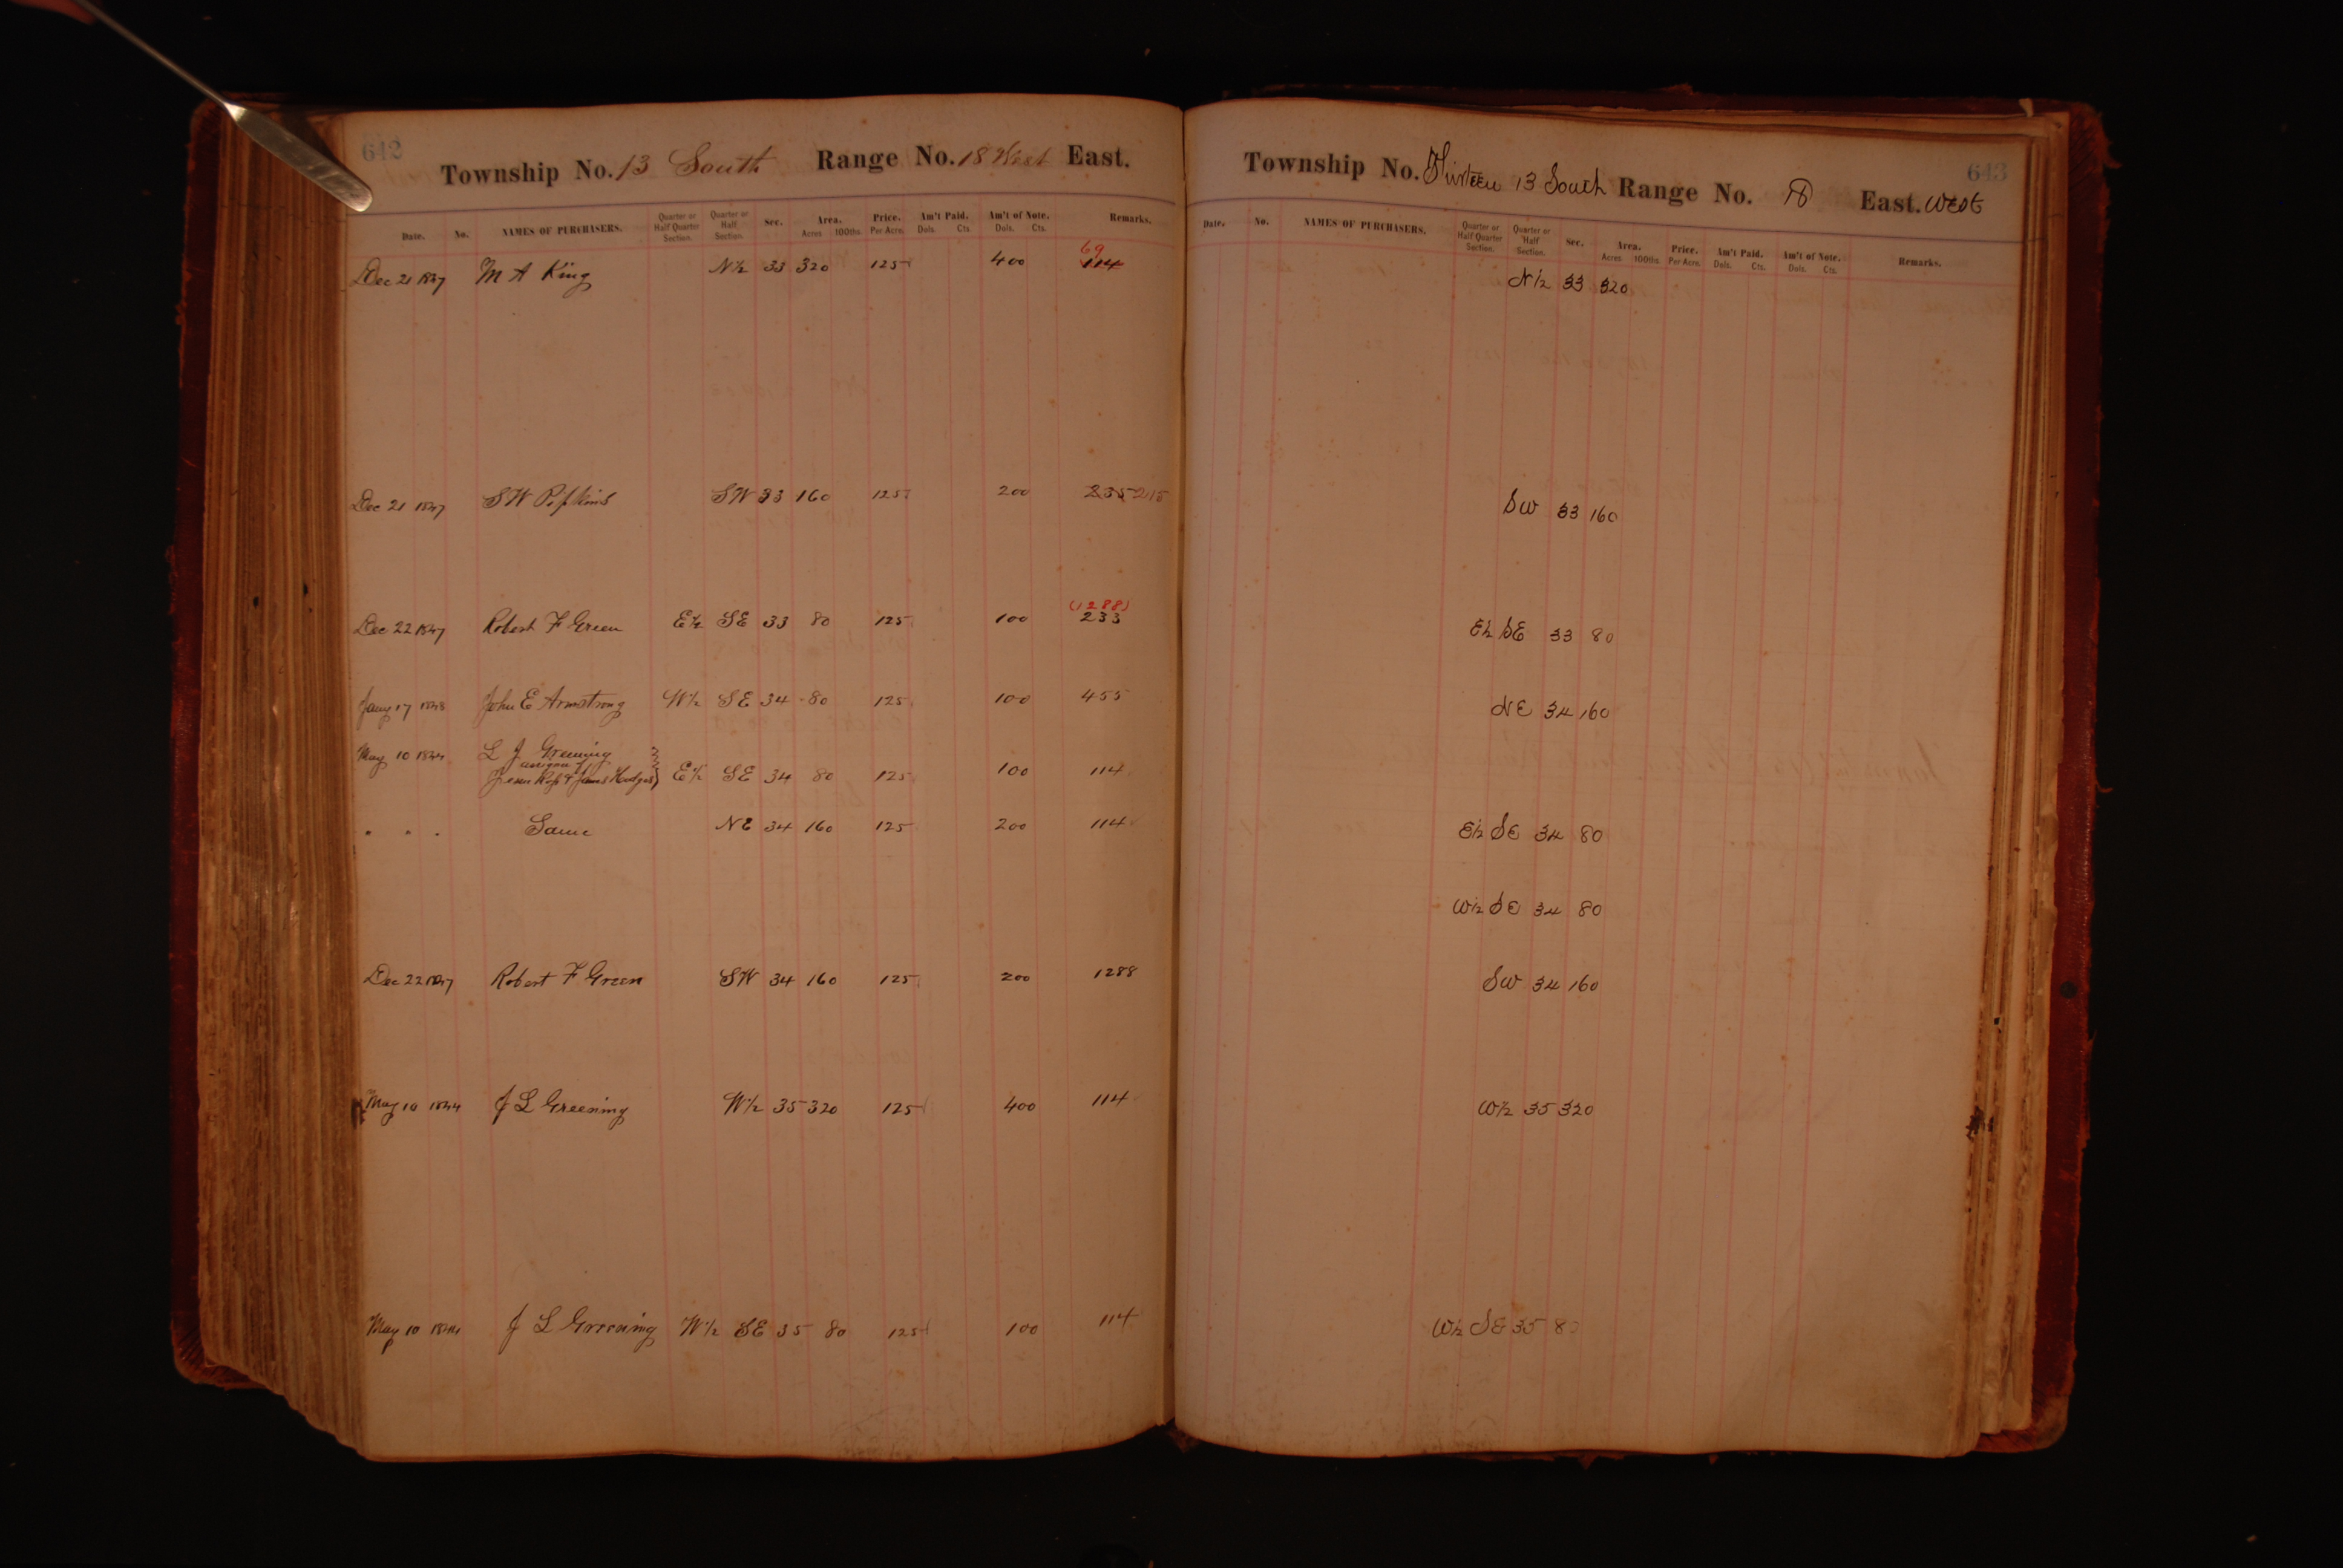 642
Township No. 13 South Range No. 18 West East.
Date. No. NAMES OF PURCHASERS. Quarter or Half Quarter Section. Quarter or Half Section. Sec. Area. Acres 100ths. Price. Per Acre. Am't Paid. Dols. Cts. Am't of Note. Dols. Cts. Remarks.
69
Dec 21 1847 M A King N½ 33 320 125 400 114
Dec 21 1847 S W Popkins SW 33 160 125 200 235 215
(1288)
Dec 22 1847 Robert F Green E½ SE 33 80 125 100 233
Jany 17 1848 John E Armstrong W½ SE 34 80 125 100 455
May 10 1844 L J Greening
assignee of
& James Hodges E½ SE 34 80 125 100 114
" " " Same NE 34 160 125 200 114
Dec 22 1847 Robert F Green SW 34 160 125 200 1288
May 10 1844 J L Greening W½ 35 320 125 400 114
May 10 1844 J L Greening W½ SE 35 80 125 100 114
643
Township No. Thirteen 13 South Range No. 18 East. West
Date. No. NAMES OF PURCHASERS. Quarter or Half Quarter Section. Quarter or Half Section. Sec. Area. Acres 100ths. Price. Per Acre. Am't Paid. Dols. Cts. Am't of Note. Dols. Cts. Remarks.
N½ 33 320
SW 33 160
E½ SE 33 80
NE 34 160
E½ SE 34 80
W½ SE 34 80
SW 34 160
W½ 35 320
W½ SE 35 80